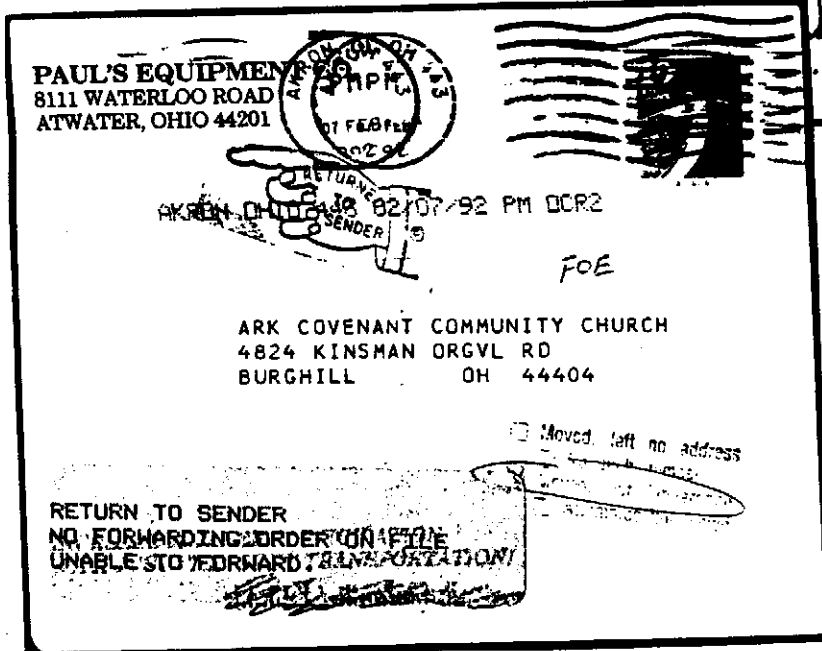 PAUL'S EQUIPMENT
8111 WATERLOO ROAD
ATWATER, OHIO 44201
AKRON, OH 443
PM
07 FEB
RETURNED
TO
SENDER
AKRON OHIO 443 02/07/92 PM OCR2
FOE
ARK COVENANT COMMUNITY CHURCH
4824 KINSMAN ORGVL RD
BURGHILL OH 44404
Moved, left no address
RETURN TO SENDER
NO FORWARDING ORDER ON FILE
UNABLE TO FORWARD